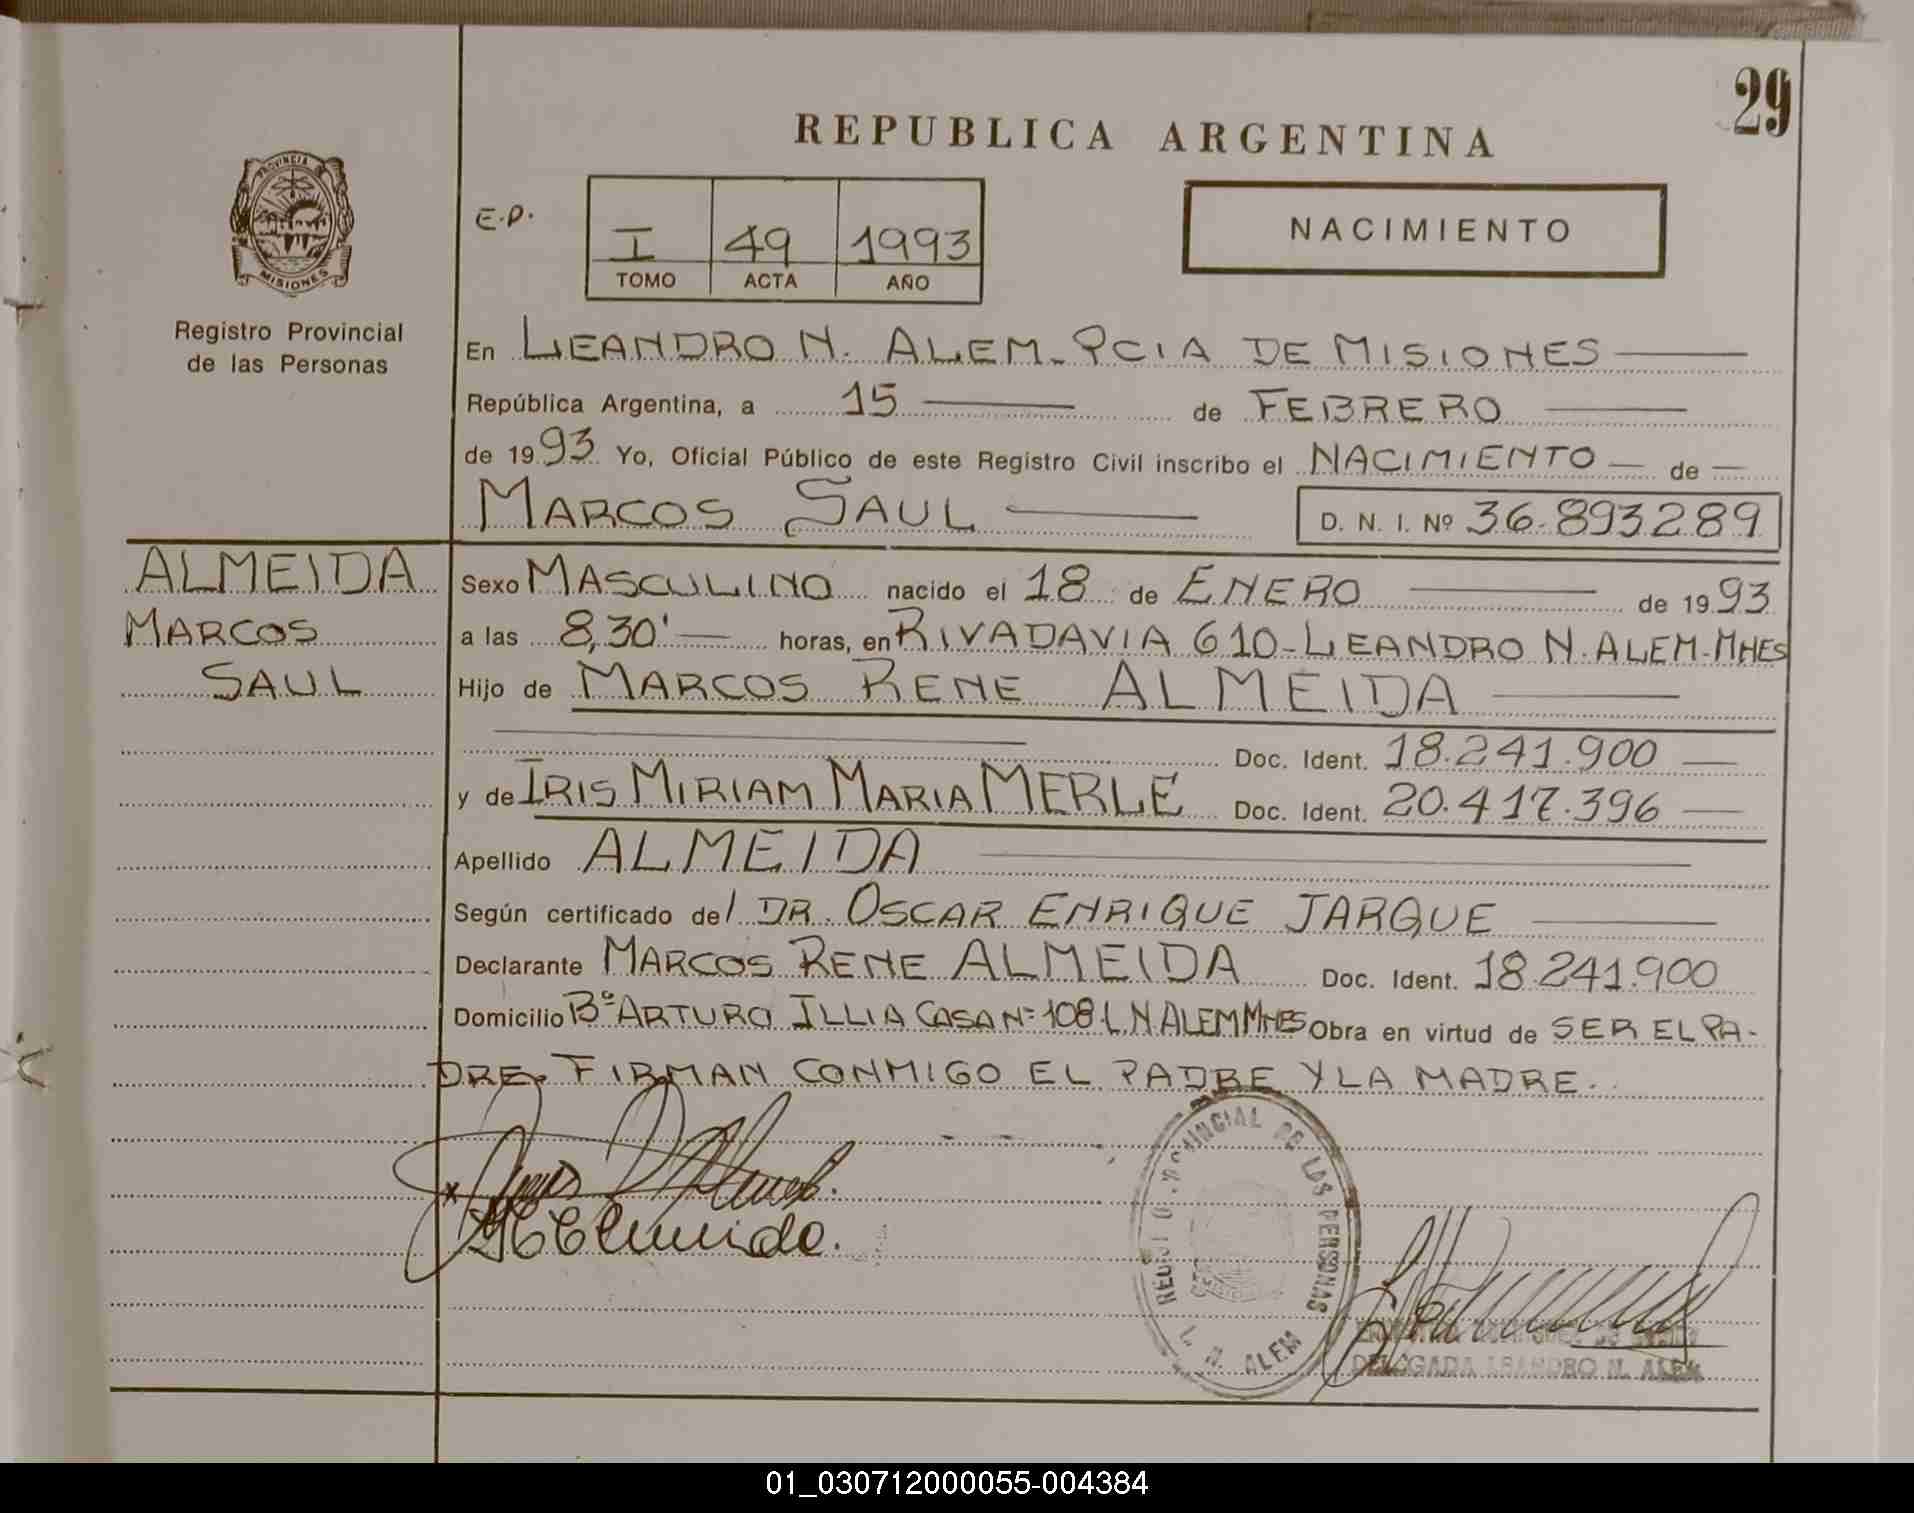 29
REPUBLICA ARGENTINA
PROVINCIA
MISIONES
Registro Provincial
de las Personas
E.P.
I 49 1993
TOMO ACTA AÑO
NACIMIENTO
En LEANDRO N. ALEM-PCIA DE MISIONES
República Argentina, a 15 de FEBRERO
de 1993 Yo, Oficial Público de este Registro Civil inscribo el NACIMIENTO de
MARCOS SAUL D. N. I. Nº 36.893289
ALMEIDA
MARCOS
SAUL
Sexo MASCULINO nacido el 18 de ENERO de 1993
a las 8,30' horas, en RIVADAVIA 610-LEANDRO N. ALEM-MNES
Hijo de MARCOS RENE ALMEIDA
Doc. Ident. 18.241.900
y de IRIS MIRIAM MARIA MERLE Doc. Ident. 20.417.396
Apellido ALMEIDA
Según certificado del DR. OSCAR ENRIQUE JARQUE
Declarante MARCOS RENE ALMEIDA Doc. Ident. 18.241.900
Domicilio Bº ARTURO ILLIA CASA Nº 108-L N ALEM MNES Obra en virtud de SER EL PA-
DRE. FIRMAN CONMIGO EL PADRE Y LA MADRE.
REGISTRO PROVINCIAL DE LAS PERSONAS
L. N. ALEM
DELEGADA LEANDRO N. ALEM
01_030712000055-004384